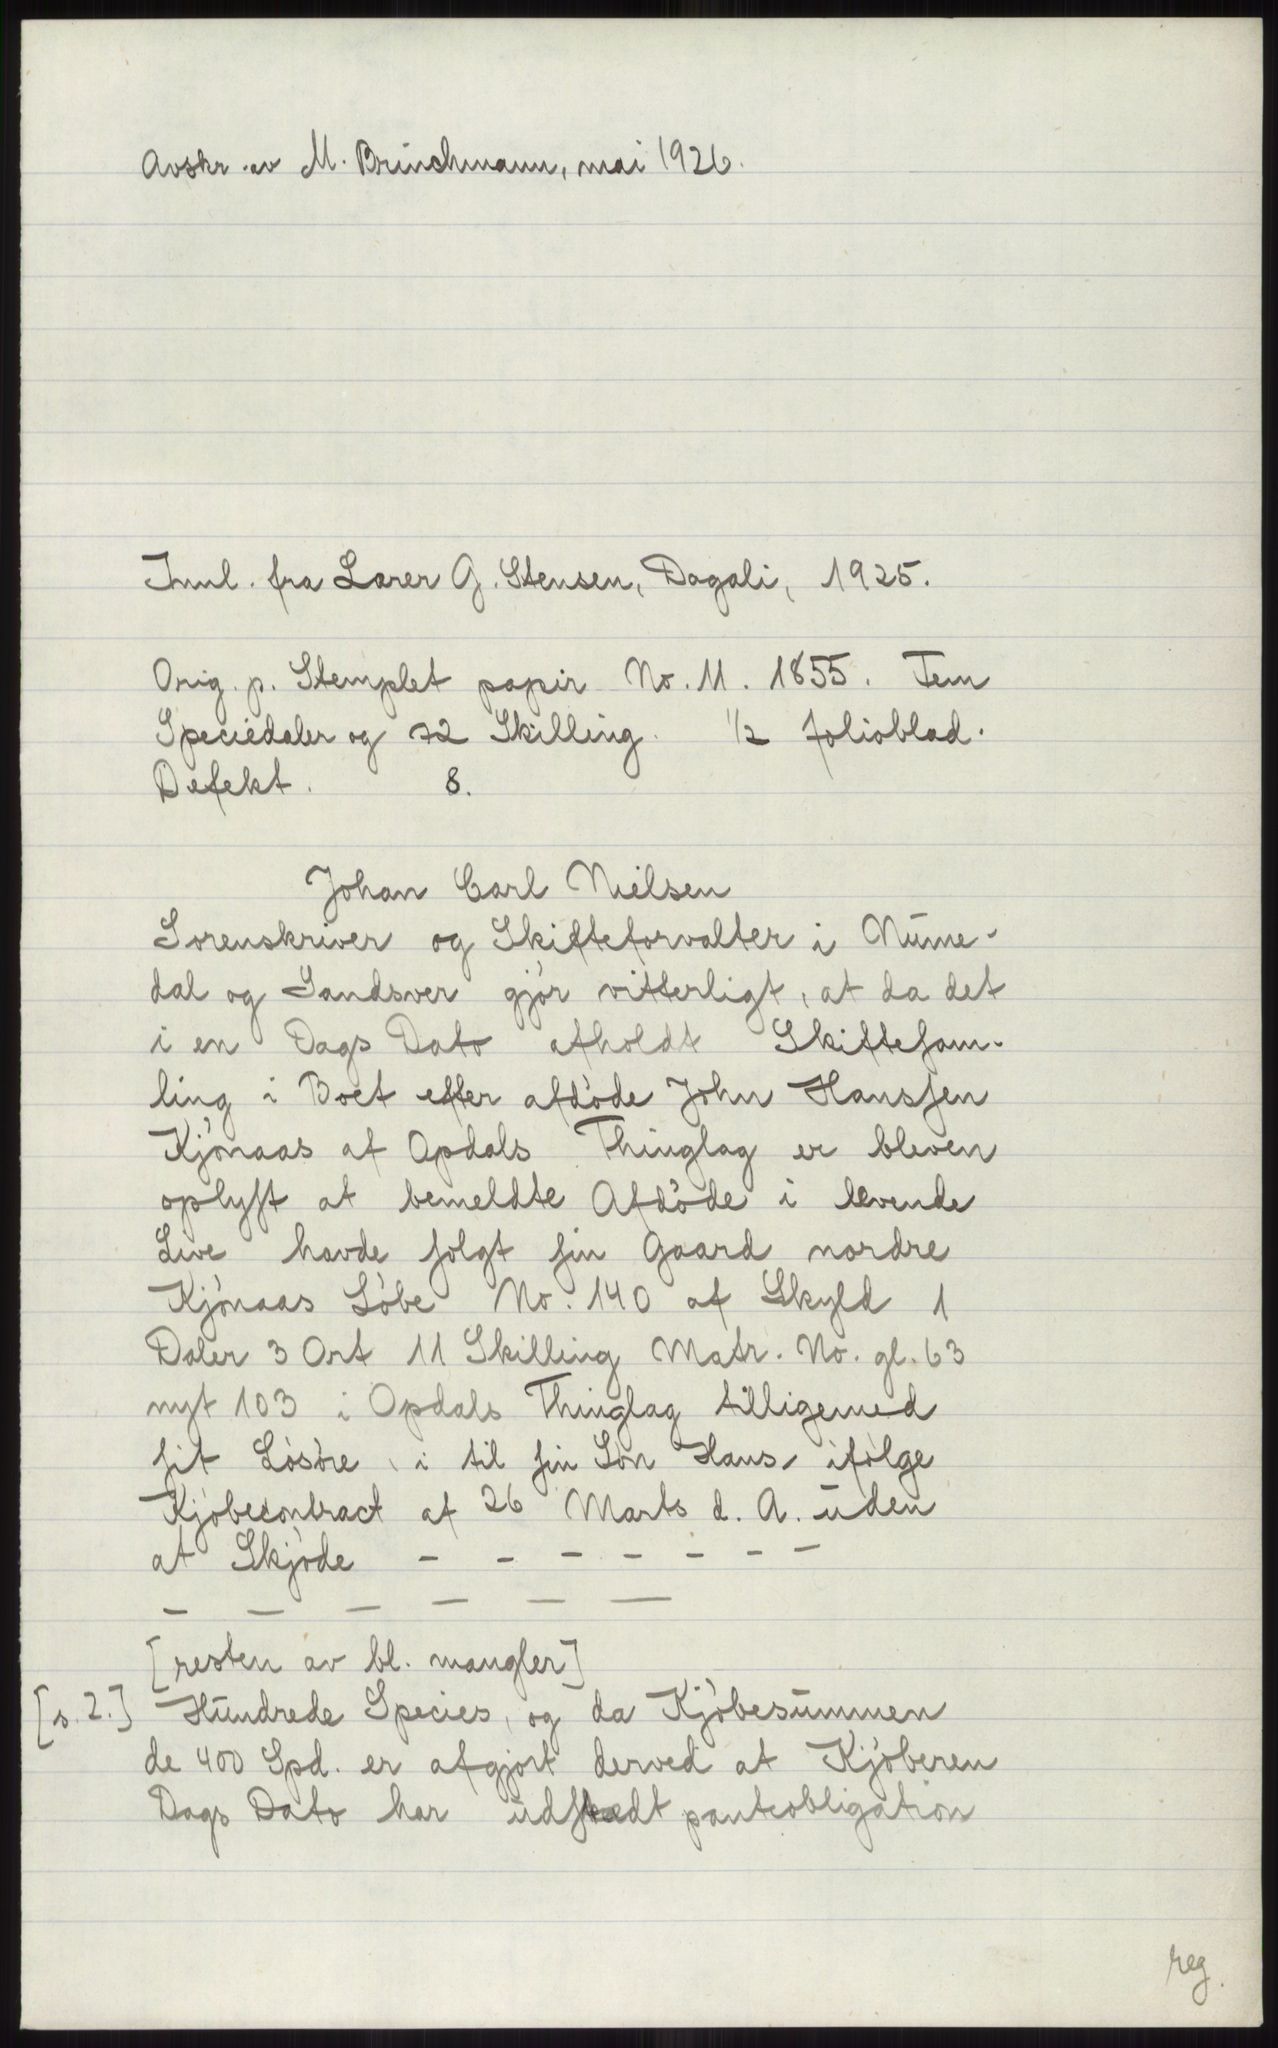 Avskr. av M. Brinchmann, mai 1926.
Innl. fra Lærer G. Stensen, Dagali, 1925.
Orig. p. Stemplet papir No. 11. 1855. Fem
Speciedaler og 72 Skilling. 1/2 folioblad.
Defekt. 8.
Johan Carl Nielsen
Sorenskriver og Skifteforvalter i Nume-
dal og Sandsver gjør vitterligt, at da det
i en Dags Dato afholdt Skiftesam-
ling i Boet efter afdøde John Hanssen
Kjønaas af Opdals Thinglag er bleven
oplyst at bemeldte Afdøde i levende
Live havde solgt sin Gaard nordre
Kjønaas Løbe No. 140 af Skyld 1
Daler 3 Ort 11 Skilling Matr. No. gl. 63
nyt 103 i Opdals Thinglag tilligemed
sit Løsøre, i til sin Søn Hans, ifølge
Kjøbecontract af 26 Marts d. A. uden
at Skjøde - - - - - - -
- - - - - -
[resten av bl. mangler]
[s. 2.] Hundrede Species, og da Kjøbesummen
de 400 Spd. er afgjort derved at Kjøberen
Dags Dato har udstædt panteobligation
reg.